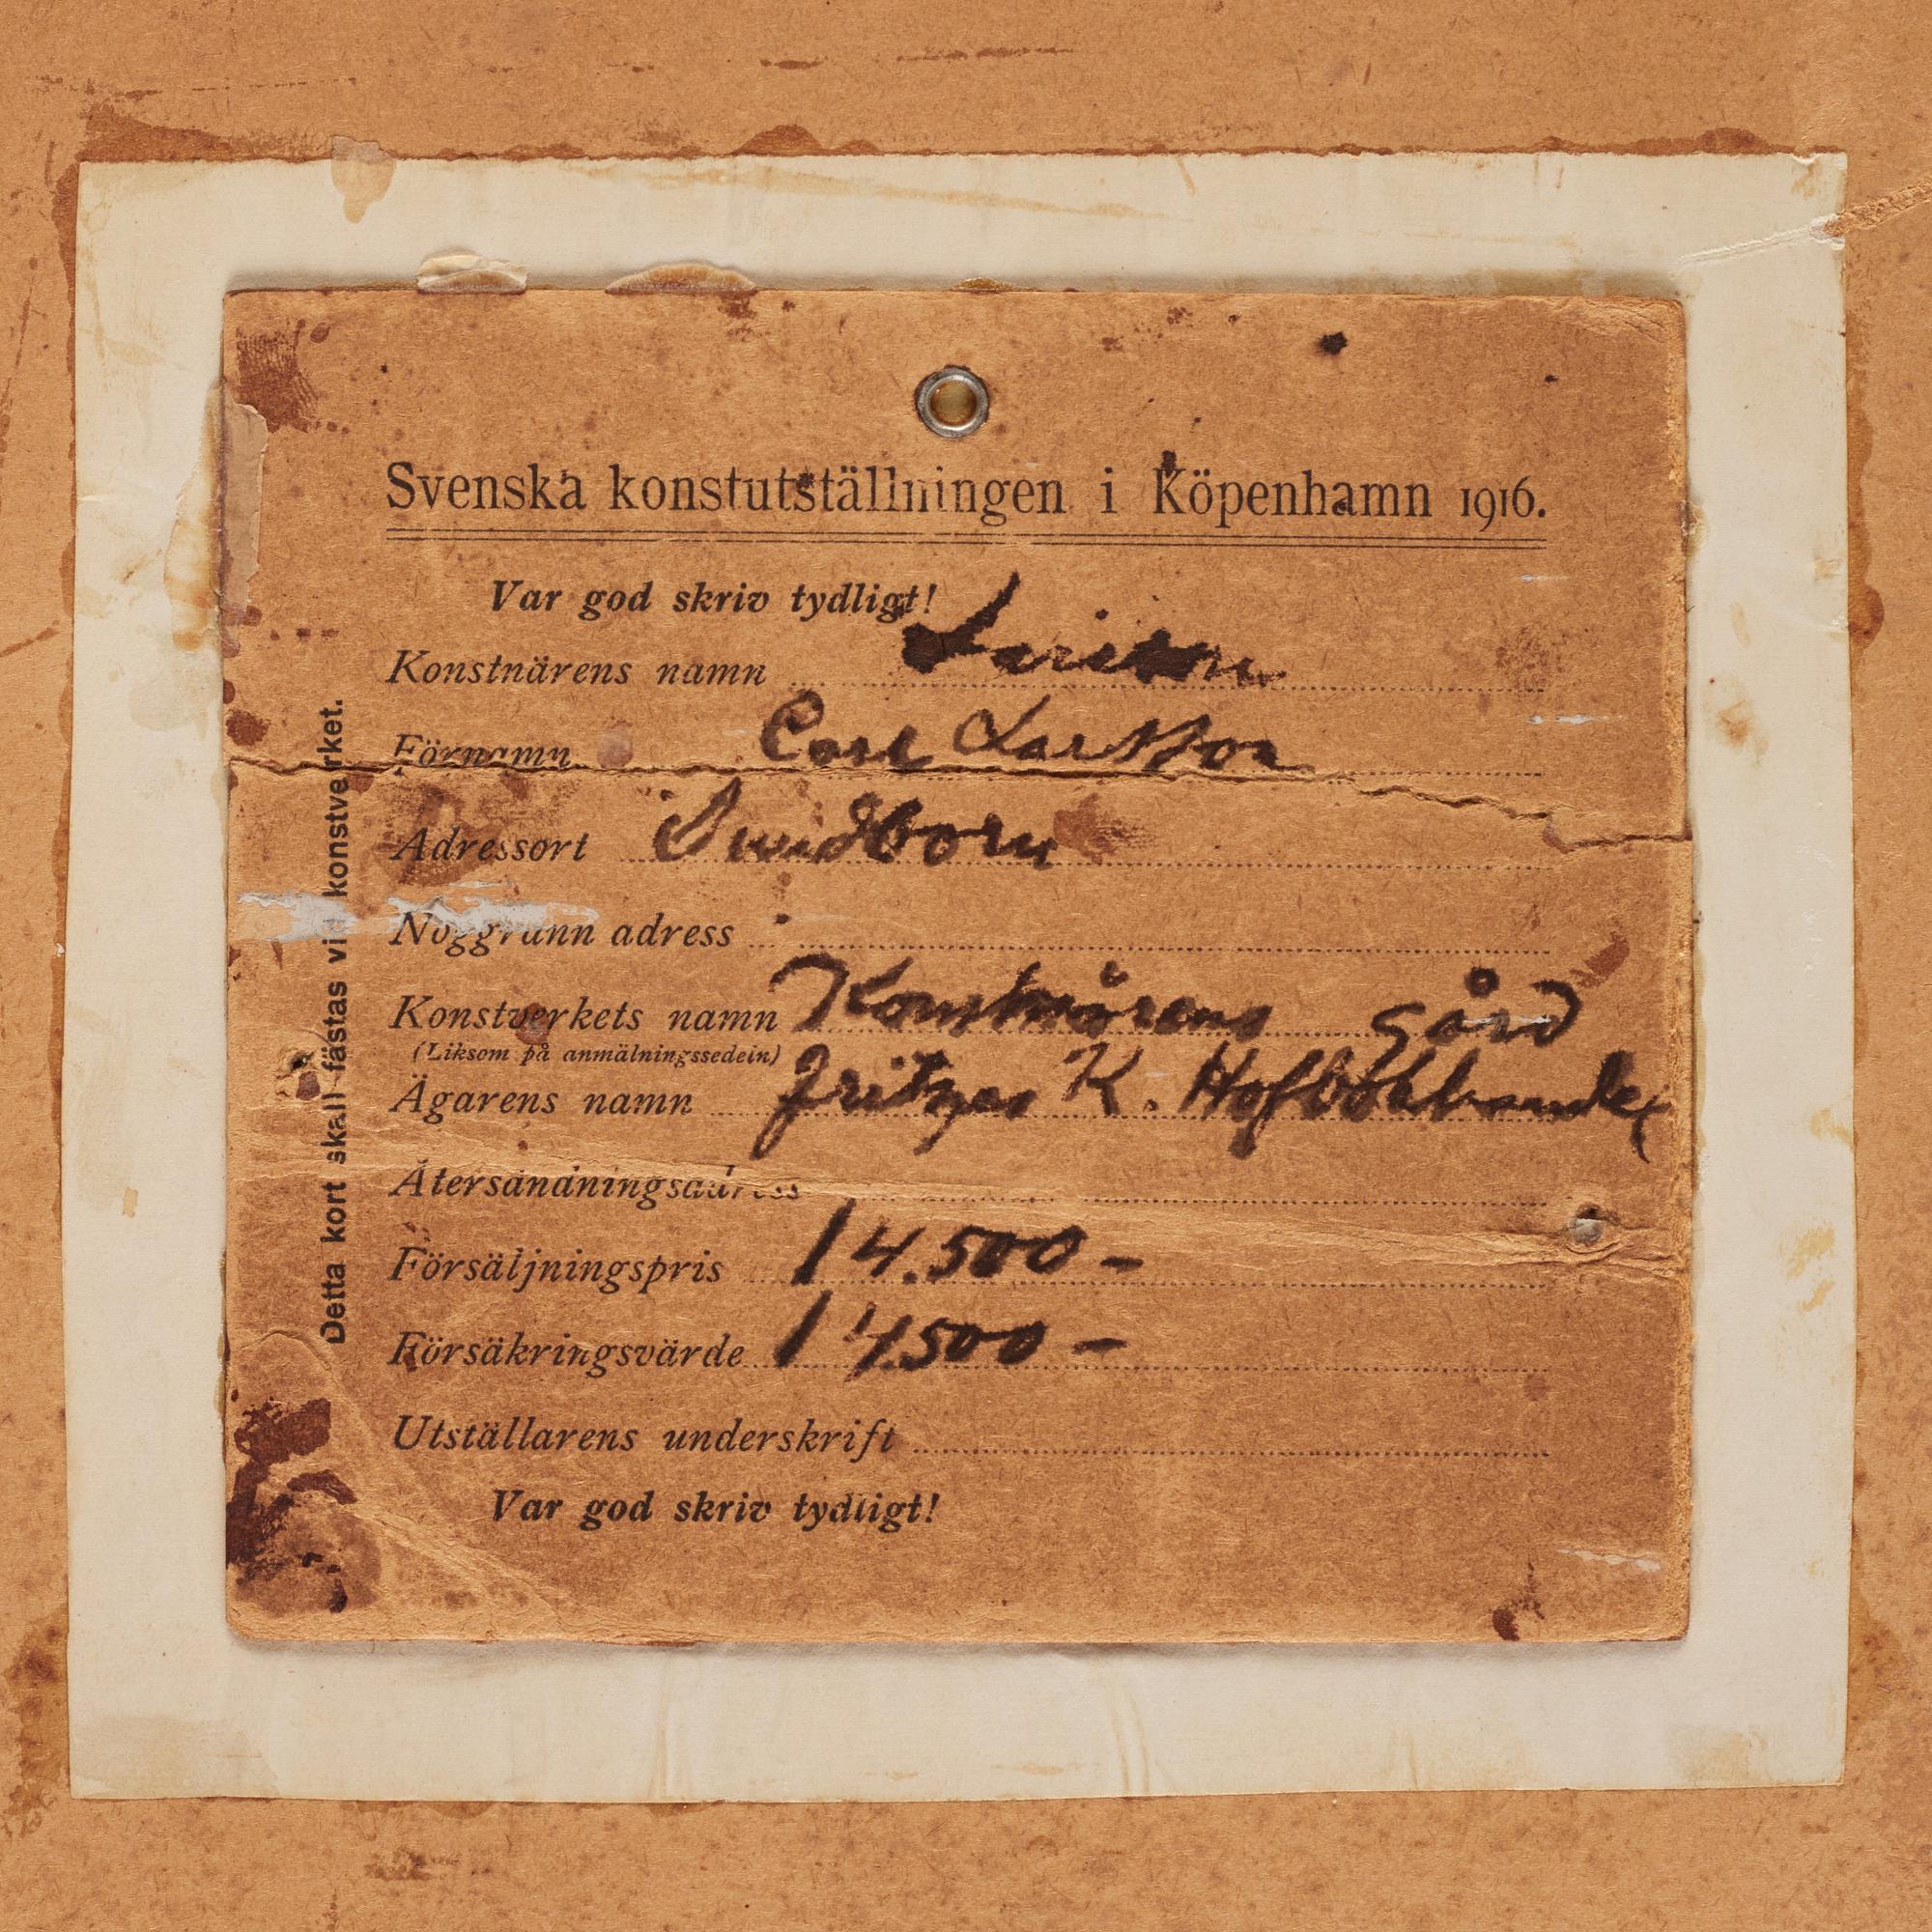 Svenska konstutställningen i Köpenhamn 1916.
Var god skriv tydligt!
Konstnärens namn
Förnamn Carl Larsson
Adressort Sundborn
Noggrann adress
Konstverkets namn Konstnärens gård
(Liksom på anmälningssedeln)
Ägarens namn Fritzes K. Hofbokhandel
Återsändningsadress
Försäljningspris 14.500 -
Försäkringsvärde 14500 -
Utställarens underskrift
Var god skriv tydligt!
Detta kort skall fästas vid konstverket.